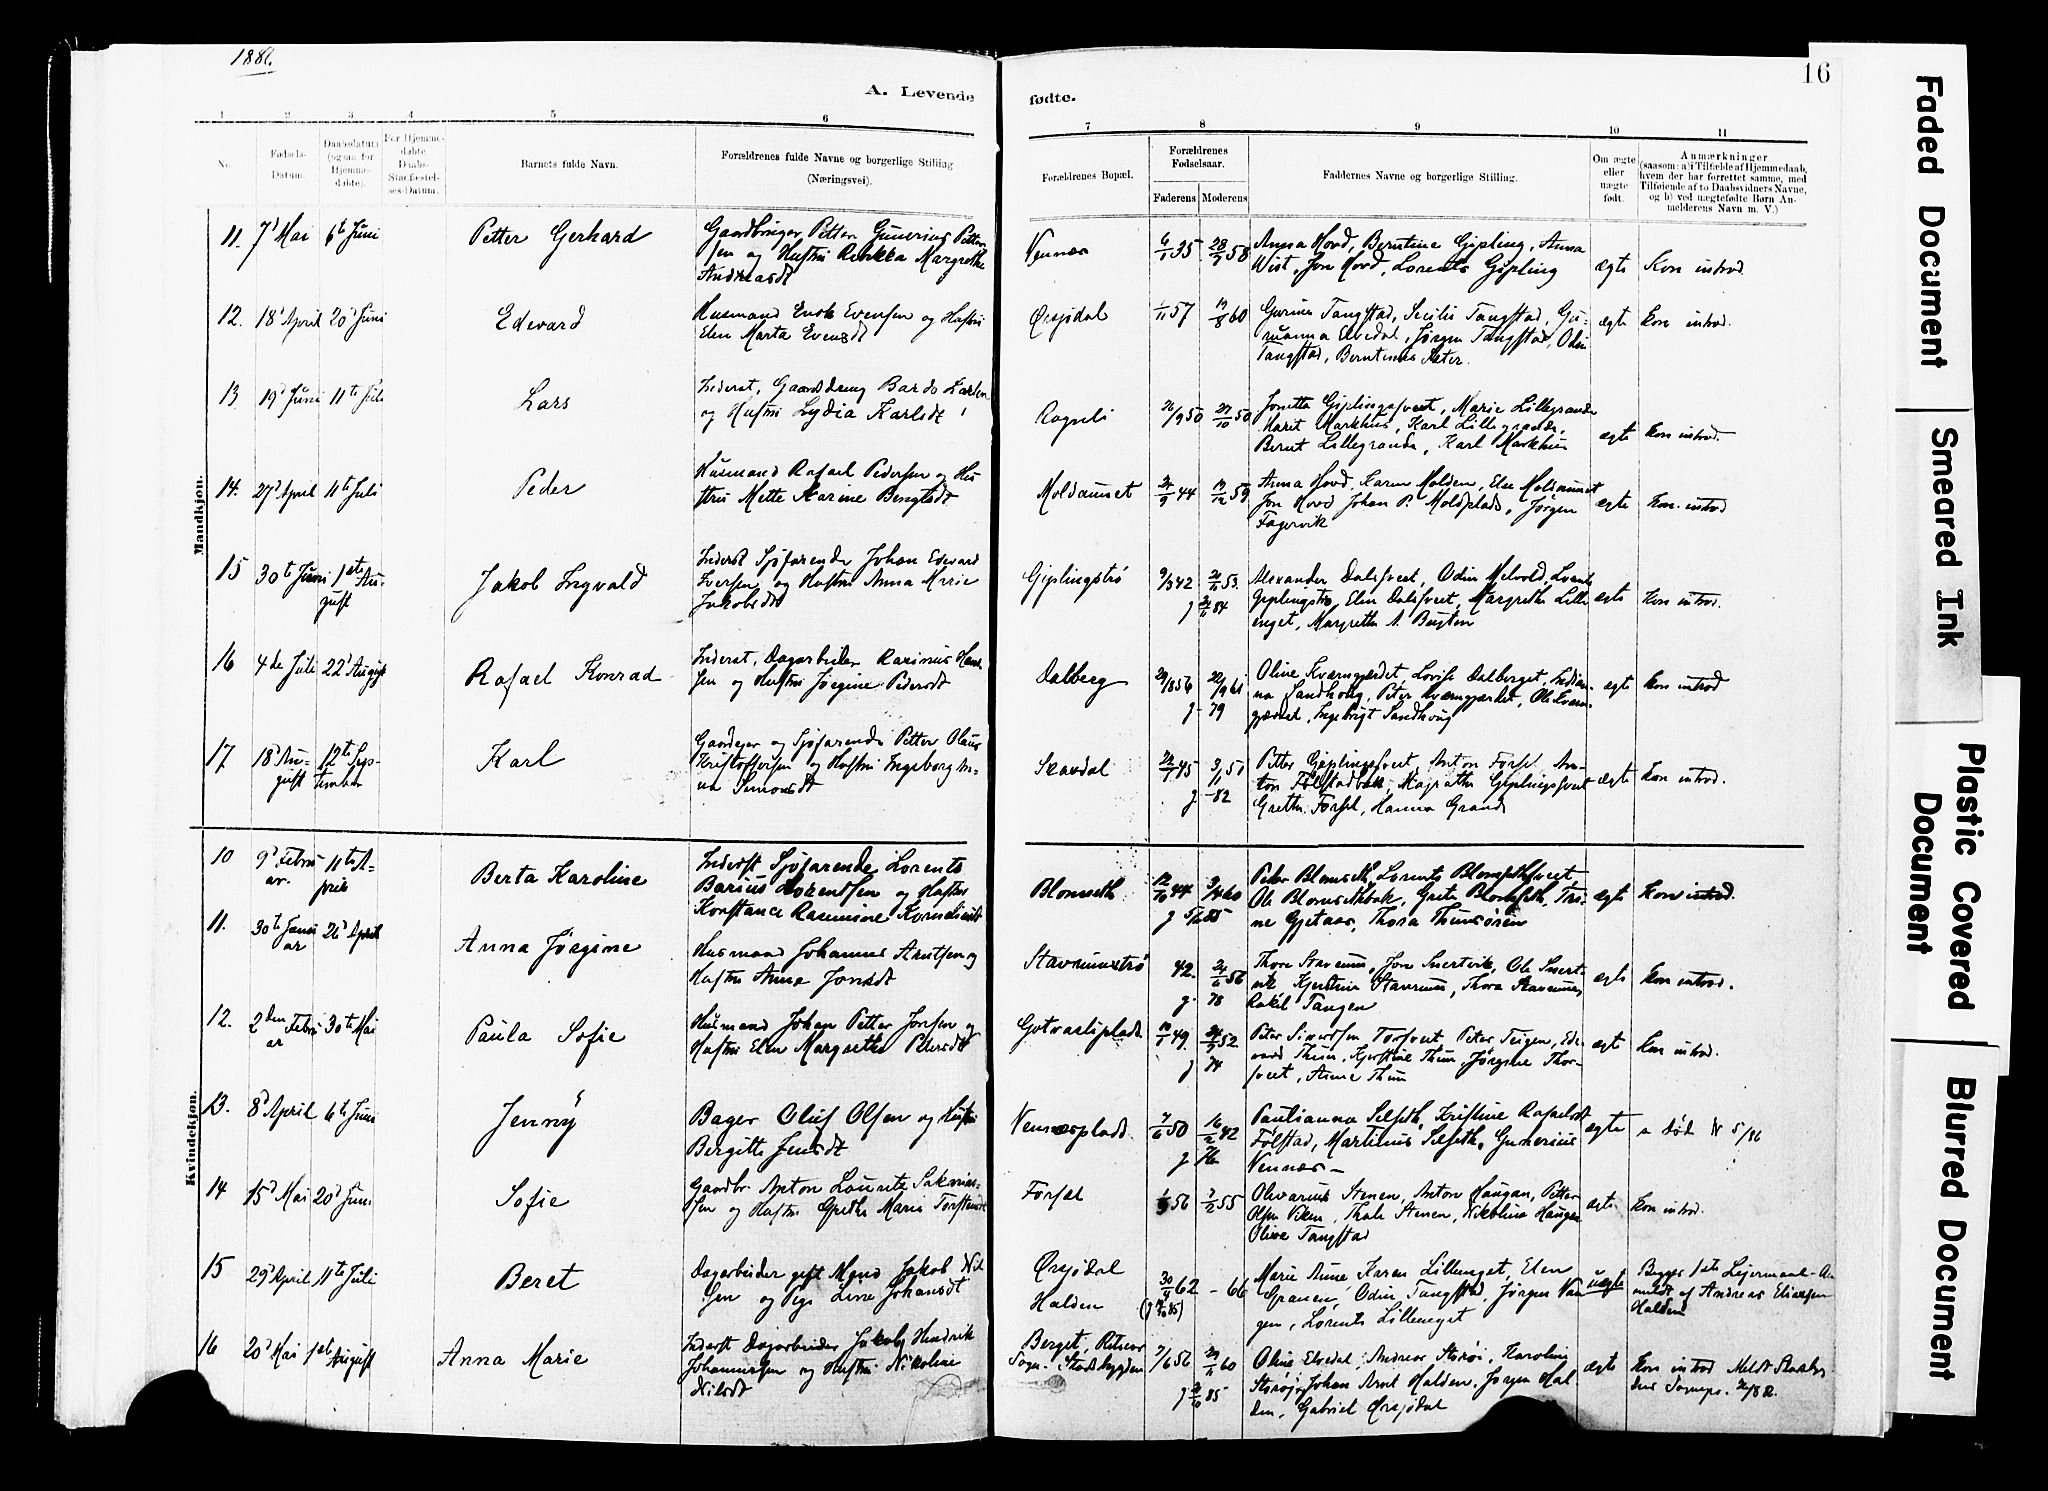 1886.
A. Levende
fødte.
16
1 2 3 4 5 6 7 8 9 10 11
No.
Fødsels-
Datum.
Daabsdatum
(ogsaa for
Hjemme-
døbte).
For Hjemme-
døbte
Daabs-
Stadfæstel-
ses-Datum.
Barnets fulde Navn.
Forældrenes fulde Navne og borgerlige Stilling
(Næringsvei).
Forældrenes Bopæl.
Forældrenes
Fødselsaar.
Faderens Moderens
Faddernes Navne og borgerlige Stilling.
Om ægte
eller
uægte
født.
Anmærkninger
(saasom: a) i Tilfælde af Hjemmedaab,
hvem der har forrettet samme, med
Tilføiende af to Daabsvidners Navne,
og b) ved uægtefødte Børn An-
melderens Navn m. V.)
Mandkjøn.
11. 7d Mai 6te Juni
Petter Gerhard
Gaardbruger Petter Gunerius Petter-
sen og Hustru Rebekka Margrethe
Andreasdt
Vennæs
6/1 35 28/7 58
Anna Hovd, Berntine Gipling, Anna
Wist, Jon Hovd, Lorents Gipling
ægte Kon introd.
12. 18d April 20d Juni
Edevard
Husmand Enok Evensen og Hustru
Elen Marta Evensdt
Ørsjødal
1/11 57 19/8 60
Gurine Tangstad, Secilie Tangstad, Gu-
ruanna Elvedal, Jørgen Tangstad, Odin
Tangstad, Berntinus Sæter.
ægte Kon introd.
13. 19d Juni 11te Juli
Lars
Inderst, Gaardsdreng Bardo Larsen
og Hustru Lydia Karlsdt
Rognli
26/9 50 27/10 50
Jonetta Giplingssveet, Marie Lillegrande
Marit Markhus, Karl Lillegrande,
Bernt Lillegrande, Karl Markhus
ægte Kon introd.
14. 27d April 11te Juli
Peder
Husmand Rafael Pedersen og Hu-
stru Mette Karine Bengtsdt
Moldaunet
24/9 44 19/12 59
Anna Hovd, Karen Molden, Elen Moldaunet
Jon Hovd Johan P. Moldplads, Jørgen
Fagervik
ægte Kon. introd
15 30te Juni 1ste Au-
gust
Jakob Ingvald
Inderst Sjøfarende Johan Edevard
Iversen og Hustru Anna Marie
Jakobsdt
Giplingstrø
9/3 42
Alexander Dalssveet, Odin Melvold, Lorents
Giplingstrø, Elen Dalssveet, Margrethe Lille-
enget, Margrethe A. Bugten
ægte Kon introd.
16 4de Juli 22d August
Rafael Konrad
Inderst, Dagarbeider Rasinus Han-
sen og Hustru Jørgine Pedersdt
Dalberg
g. 79
Oline Kværngjærdet, Lovise Dalberget, Indian-
na Sandhoug, Peter Kværngjærdet, Ole Kværn-
gjærdet, Ingebrigt Sandhoug
ægte Kon introd
17 18d Au-
gust 12te Sep-
tember
Karl
Gaardeier og Sjøfarende Petter Olaus
Kristoffersen og Hustru Ingeborg An-
na Simonsdt
Skavdal
g. 82
Petter Giplingssveet, Anton Forsel An-
ton Følstadbak, Magrethe Giplingssveet
Grethe Forsel, Hanna Grande
ægte Kon introd.
Kvindekjøn.
10 9d Febru-
ar. 11te A-
pril
Berta Karoline
Inderst Sjøfarende Lorents
Barius Lorendsen og Hustru
Konstance Rasmine Kornelius dt
Blomseth
Peter Blomseth, Lorents Blomsethsveet
Ole Blomsethbak, Grete Blomseth, Tri-
ne Gjetaas, Thora Thunsøren
ægte Kon introd.
11. 30te Janu
ar 26d April
Anna Jørgine
Husmand Johannes Arntsen og
Hustru Anne Jonsdt
Stavrunstrø
42.
g. 78
Thore Stavrum, Jon Snertvik, Ole Snert-
vik Kjerstine Stavrum, Thora Stavrum,
Rakel Tangen
ægte Kon introd.
12. 2den Febru
ar 30te Mai
Paula Sofie
Husmand Johan Petter Jonsen og
Hustru Elen Margrethe Petersdt
Gotvasliplads
g 74
Peter Sivertsen Torsveet Peter Teigen, Ede-
vard Thun, Kjerstine Thun, Jørgine Thor-
sveet, Anne Thun
ægte Kon introd.
13. 8d April 6te Juni
Jenny
Bager Oluf Olsen og Hustru
Bergitte Jensdt
Vennæsplads
g 76
Paulianna Selseth, Kristine Rafaelsdt
Følstad, Martinus Selseth, Gunerius
Vennæs —
ægte død N 5/86
14 15d Mai 20d Juni
Sofie
Gaardbr Anton Lauritz Sakarias-
sen og Hustru Grethe Marie Torstensdt
Forsel
56 55
Olivarius Stenen, Anton Haugan, Petter
Olsen Viken, Thale Stenen, Nikoline Haugen
Oline Tangstad
ægte Kon introd.
15 29d April 11te Juli
Beret
Dagarbeider gift Mand Jakob Nil-
sen og Pige Lene Johansdt
Ørsjødal
Halden
30/9 62 - 66
Marie Anne Karen Lillenget, Elen
Granen, Odin Tangstad, Jørgen Van-
gen, Lorents Lillenget
uægte
Begges 1ste Leiermaal - An-
meldt af Andreas Eliassen
Halden
16 20d Mai 1ste August
Anna Marie
Inderst Dagarbeider Jakob Hendrik
Johannessen og Hustru Nikoline
Nilsdt
Berget, Ritsær
Sogn. Stadsbygden
7/6 56
Oline Elvedal, Andreas Storøi, Karoline
Storøi, Johan Arnt Halden, Jørgen Hal-
den, Gabriel Ørsjødal
ægte
Kon introd Meldt Stadsbyg-
dens Sognepr.
Faded Document
Smeared Ink
Plastic Covered
Document
Blurred Document